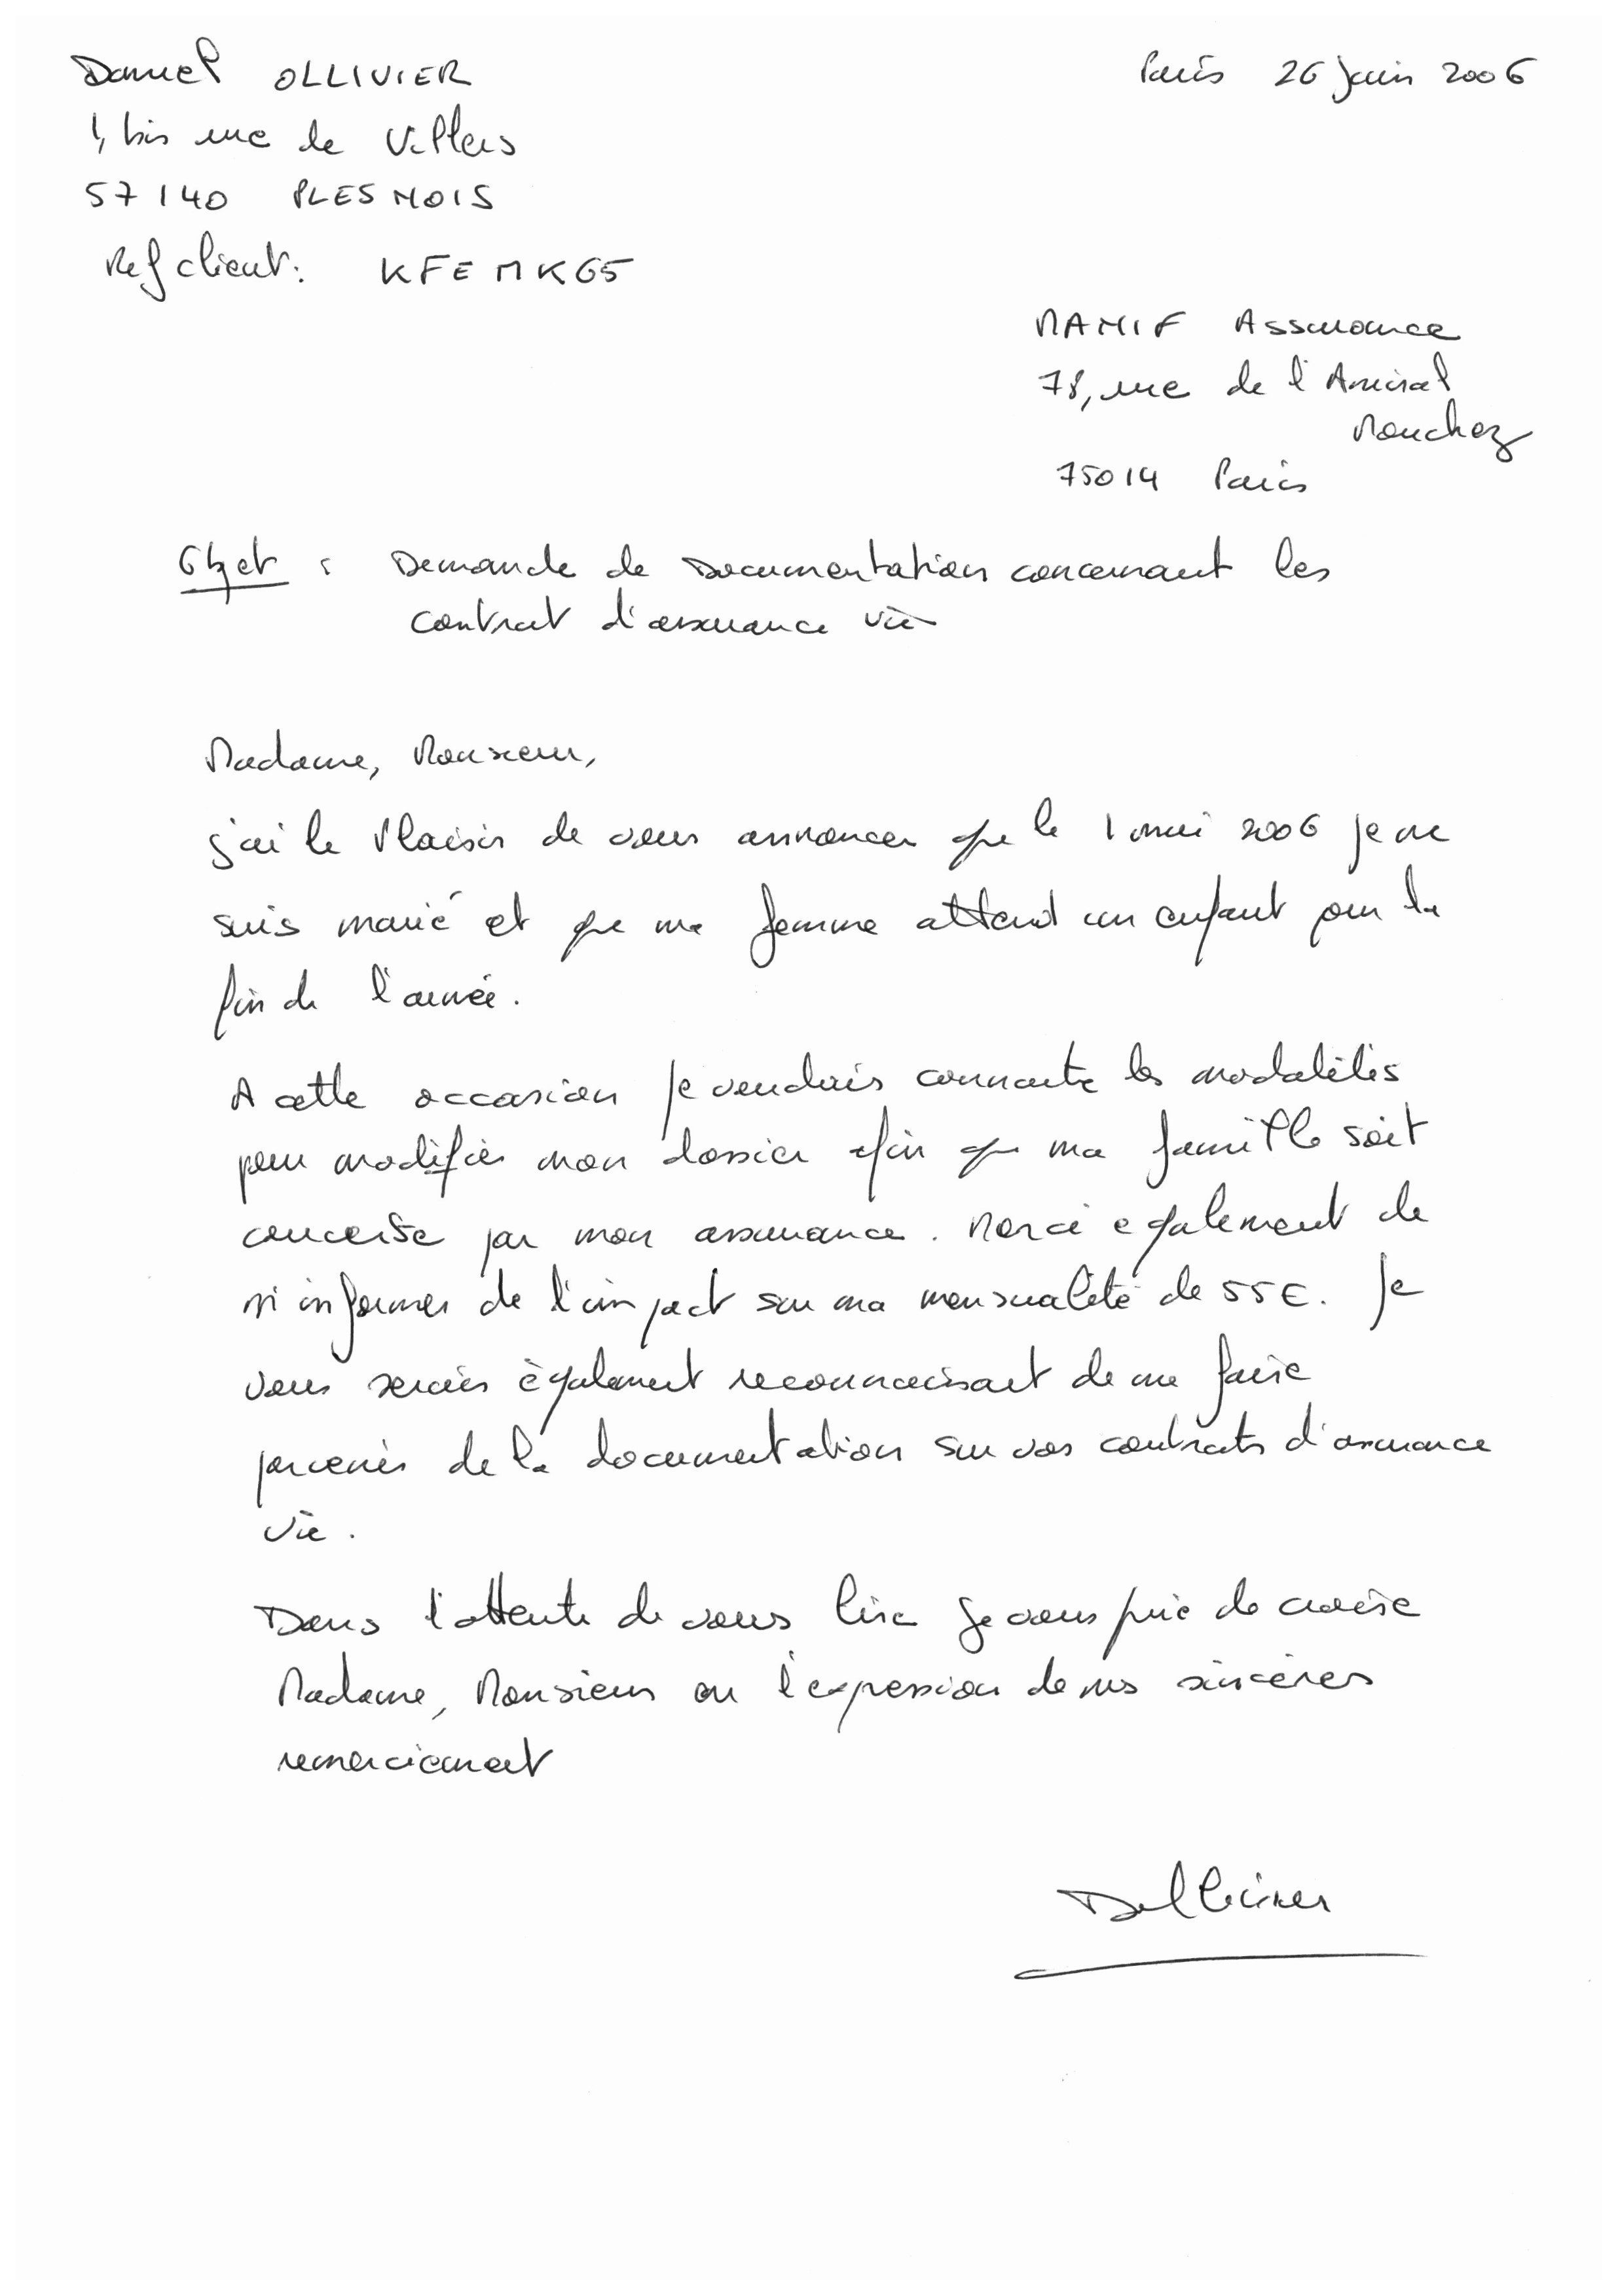 Daniel OLLIVIER
Paris 26 juin 2006
1, bis rue de Villers
57140 PLESNOIS
Ref client : KFEMK65
MAMIF Assurance
78, rue de l'Amiral
Mouchez
75014 Paris
Objet : Demande de Documentation concernant les
contrat d'assurance vie
Madame, Monsieur,
j'ai le plaisir de vous annoncer que le 1 mai 2006 je me
suis marié et que ma femme attend un enfant pour la
fin de l'année.
A cette occasion je voudrais connaitre les modalités
pour modifier mon dossier afin que ma famille soit
par mon assurance. Merci egalement de
m'informer de l'impact sur ma mensualité de 55€. Je
vous serais également reconnaissant de me faire
parvenir de la documentation sur vos contrats d'assurance
vie.
Dans l'attente de vous lire je vous prie de croire
Madame, Monsieur en l'expression de mes sincères
remerciement